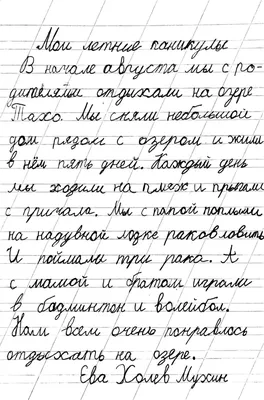 Мои летние каникулы
В начале августа мы с ро-
дителями отдыхали на озере
Тахо. Мы сняли небольшой
дом рядом с озером и жили
в нём пять дней. Каждый день
мы ходили на пляж и прыгали
с причала. Мы с папой поплыли
на надувной лодке раков ловить
И поймали три рака. А
с мамой и братом играли
в бадминтон и волейбол.
Нам всем очень понравлось
отдыхать на озере.
Ева Холев Мухин